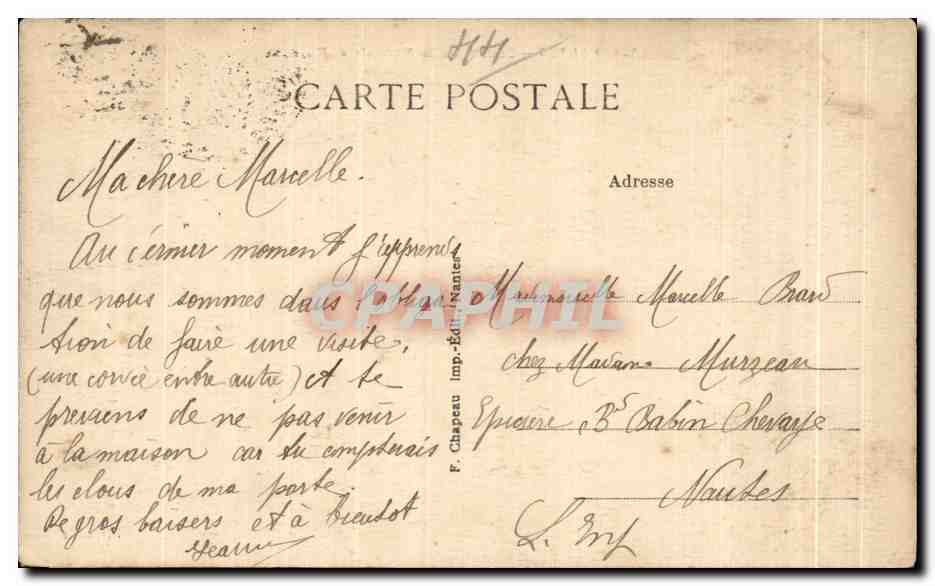 44
CARTE POSTALE
Ma chère Marcelle.
Adresse
Au dernier moment j'apprends
que nous sommes dans l'obliga
tion de faire une visite,
(une corvée entre autre) et te
previens de ne pas venir
à la maison car tu compterais
les clous de ma porte.
De gros baisers et à bientot
Jeanne
F. Chapeau Imp.-Édit., Nantes
CPAPHIL
Mademoiselle Marcelle Brard
chez Madame Murzeau
Epicière, Bd Babin Chevaye
Nantes
L. Inf